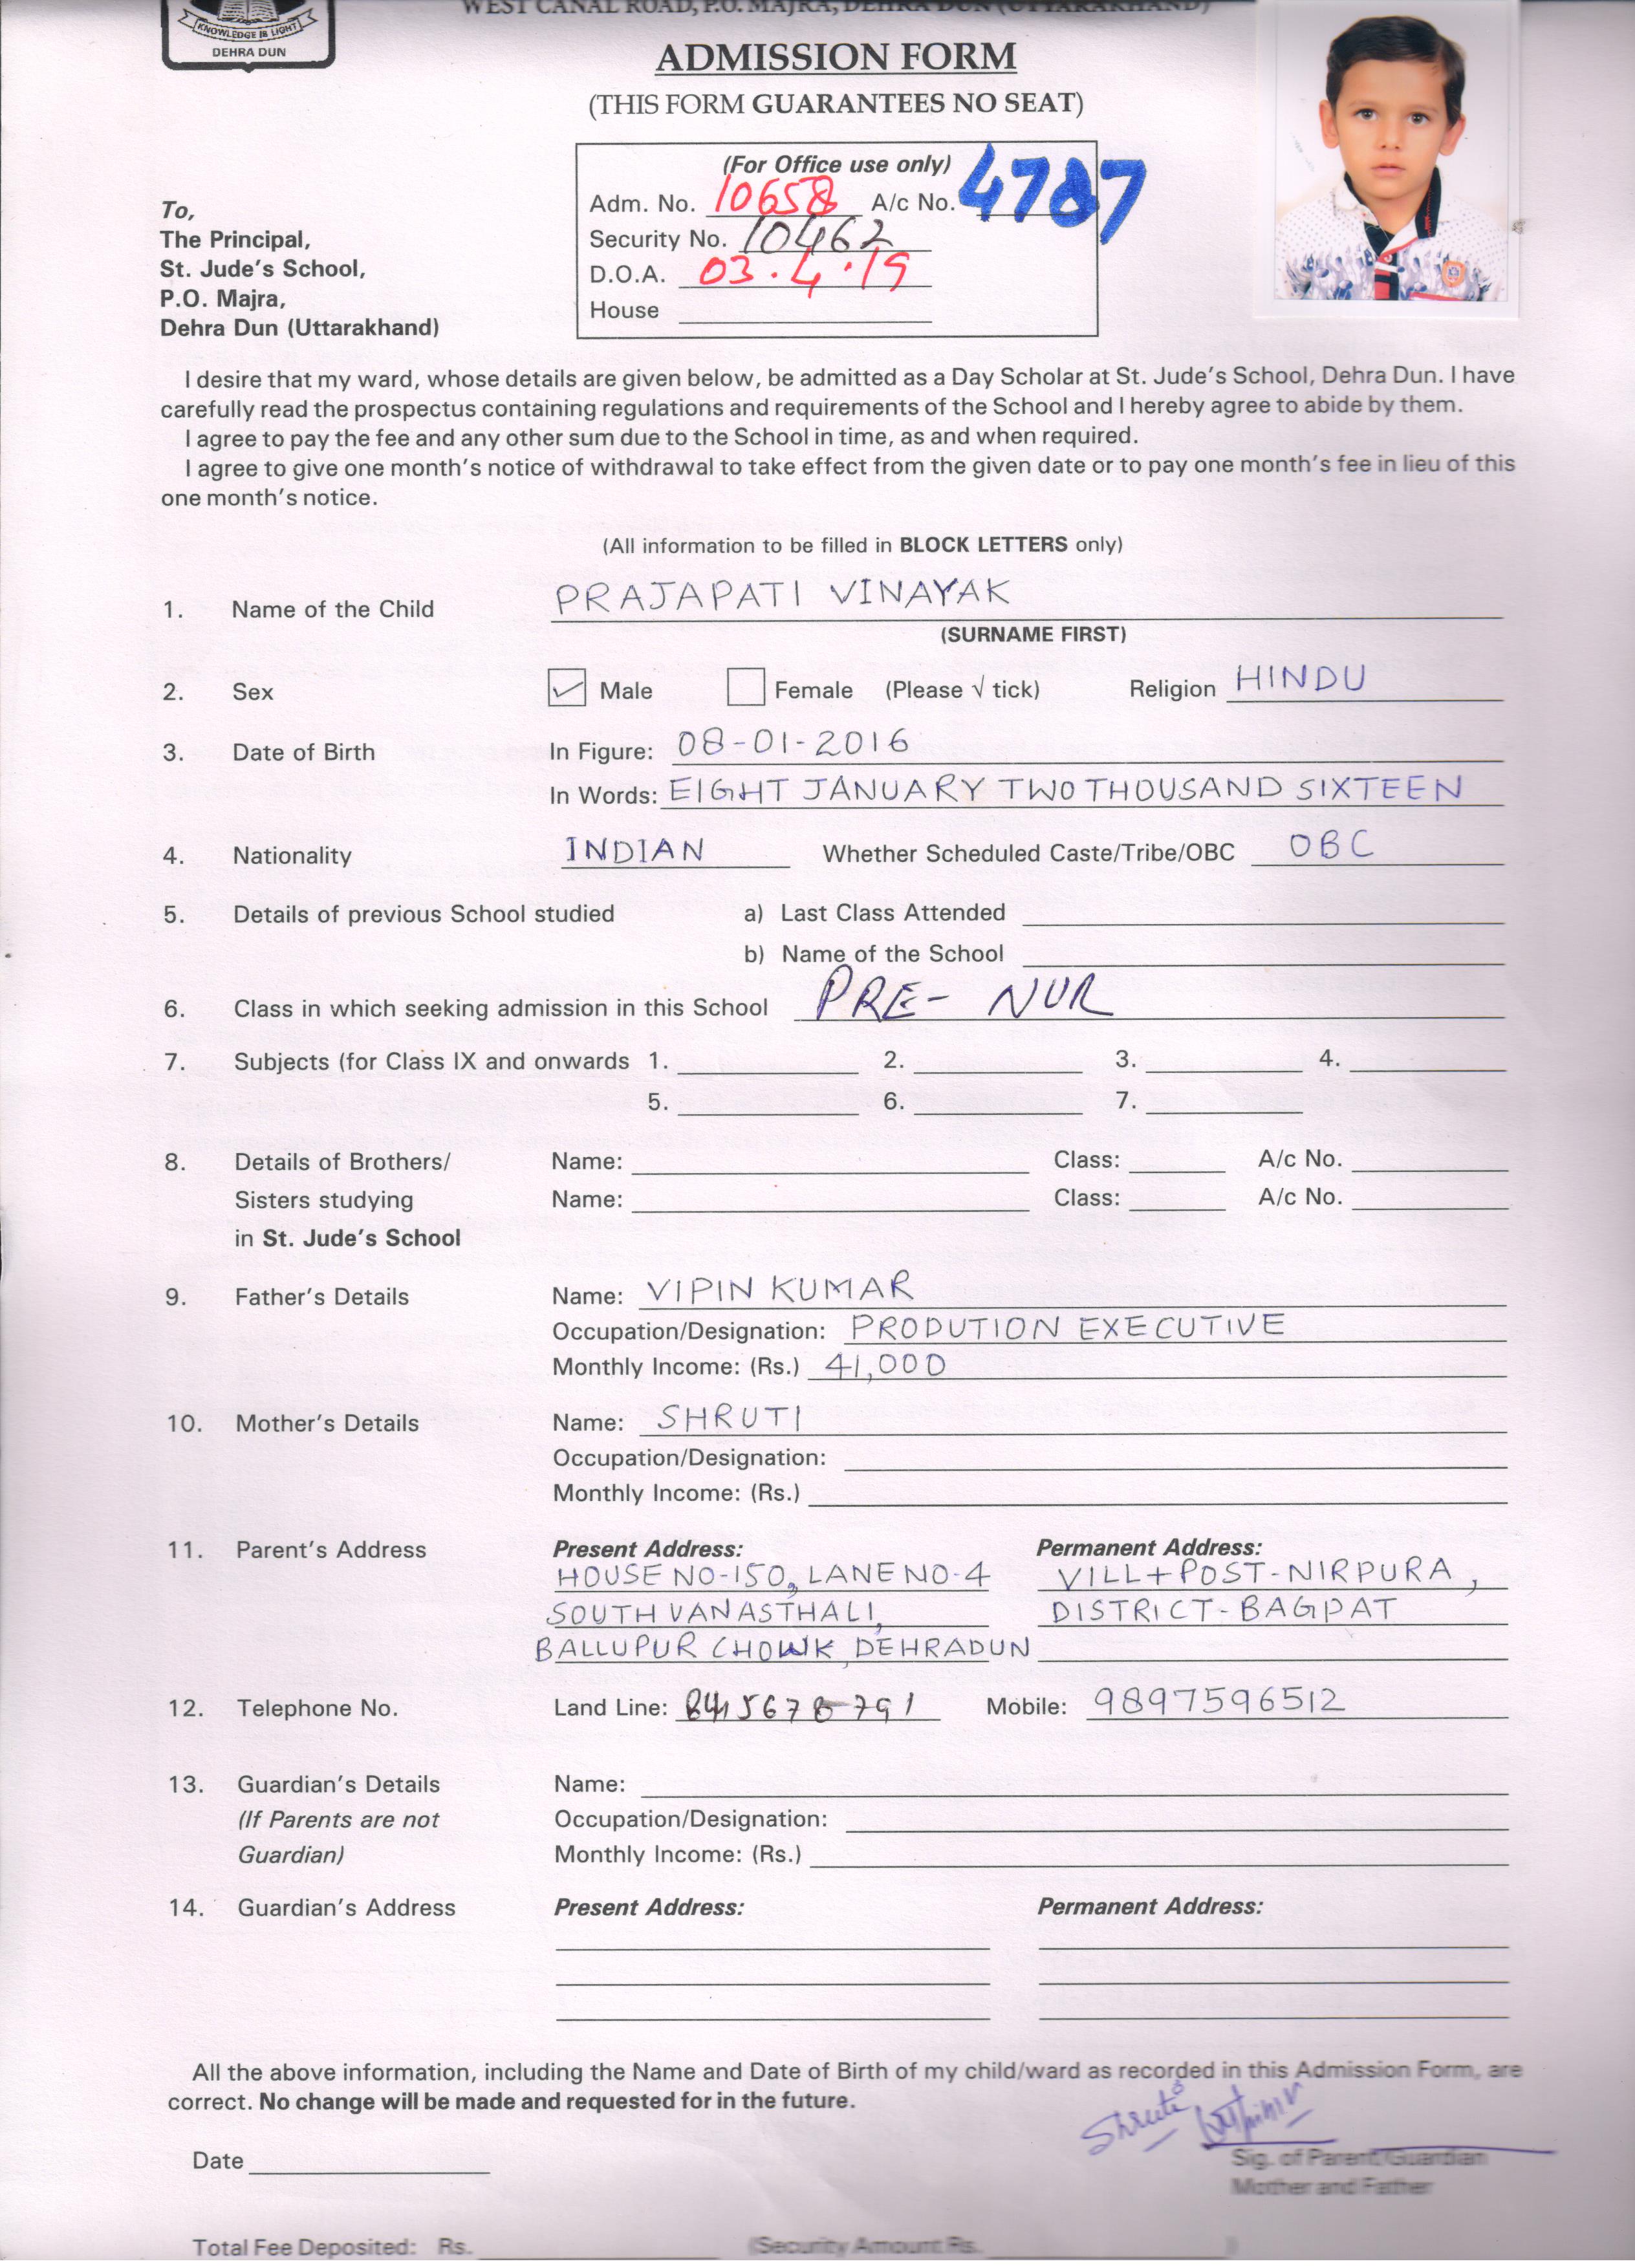 WEST CANAL ROAD, P.O. MAJRA, DEHRA DUN (UTTARAKHAND)
KNOWLEDGE IS LIGHT
DEHRA DUN
ADMISSION FORM
(THIS FORM GUARANTEES NO SEAT)
(For Office use only)
Adm. No. 10658 A/c No. 4787
Security No. 10462
D.O.A. 03.4.19
House
To,
The Principal,
St. Jude's School,
P.O. Majra,
Dehra Dun (Uttarakhand)
I desire that my ward, whose details are given below, be admitted as a Day Scholar at St. Jude's School, Dehra Dun. I have
carefully read the prospectus containing regulations and requirements of the School and I hereby agree to abide by them.
I agree to pay the fee and any other sum due to the School in time, as and when required.
I agree to give one month's notice of withdrawal to take effect from the given date or to pay one month's fee in lieu of this
one month's notice.
(All information to be filled in BLOCK LETTERS only)
1. Name of the Child PRAJAPATI VINAYAK
(SURNAME FIRST)
2. Sex ✓ Male Female (Please √ tick) Religion HINDU
3. Date of Birth In Figure: 08-01-2016
In Words: EIGHT JANUARY TWO THOUSAND SIXTEEN
4. Nationality INDIAN Whether Scheduled Caste/Tribe/OBC OBC
5. Details of previous School studied a) Last Class Attended
b) Name of the School
6. Class in which seeking admission in this School PRE- NUR
7. Subjects (for Class IX and onwards 1. 2. 3. 4.
5. 6. 7.
8. Details of Brothers/ Name: Class: A/c No.
Sisters studying Name: Class: A/c No.
in St. Jude's School
9. Father's Details Name: VIPIN KUMAR
Occupation/Designation: PRODUTION EXECUTIVE
Monthly Income: (Rs.) 41,000
10. Mother's Details Name: SHRUTI
Occupation/Designation:
Monthly Income: (Rs.)
11. Parent's Address Present Address: Permanent Address:
HOUSE NO-150, LANE NO-4 VILL+POST-NIRPURA,
SOUTH VANASTHALI, DISTRICT-BAGPAT
BALLUPUR CHOWK, DEHRADUN
12. Telephone No. Land Line: Mobile: 9897596512
13. Guardian's Details Name:
(If Parents are not Occupation/Designation:
Guardian) Monthly Income: (Rs.)
14. Guardian's Address Present Address: Permanent Address:
All the above information, including the Name and Date of Birth of my child/ward as recorded in this Admission Form, are
correct. No change will be made and requested for in the future.
Shruti
Date Sig. of Parent/Guardian
Mother and Father
Total Fee Deposited: Rs. (Security Amount Rs. )